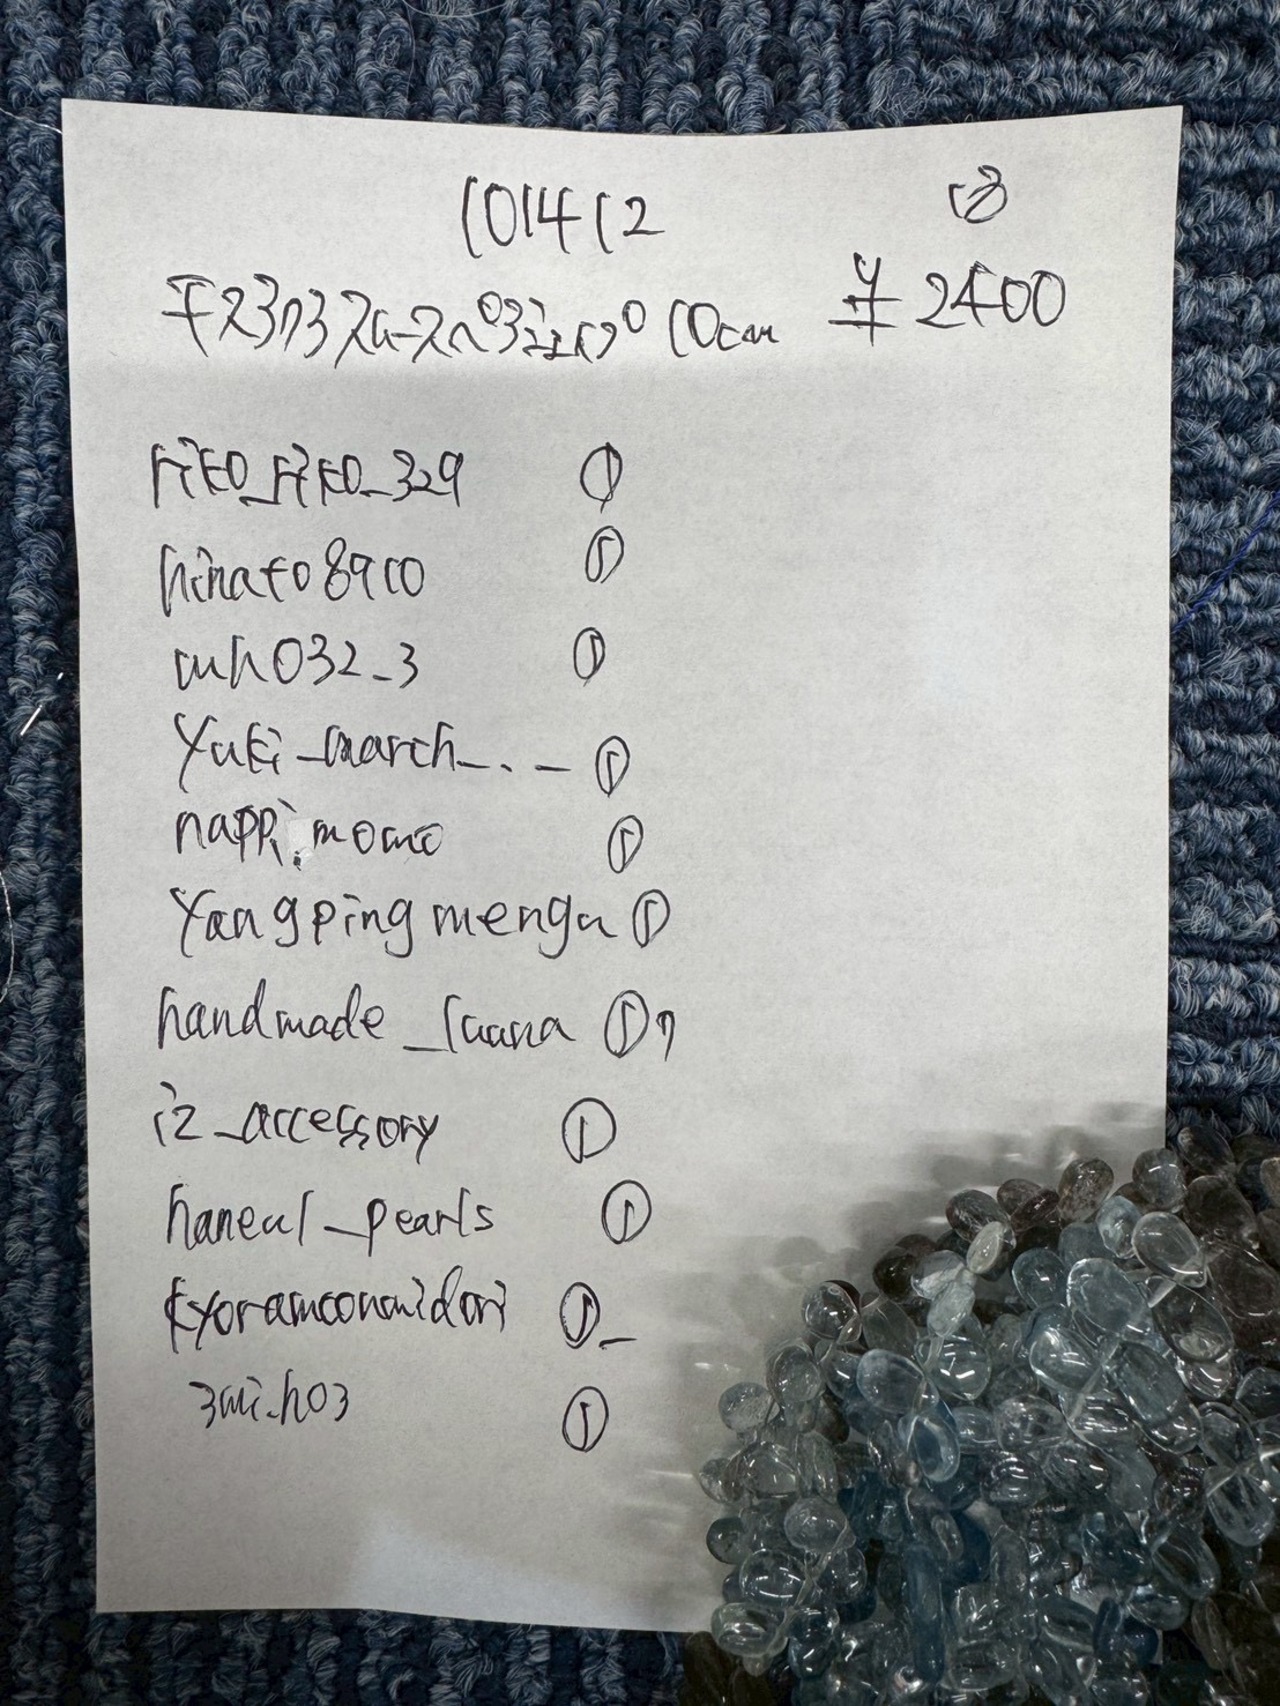 101412 ⑬
¥2400
10cm
riko_riko_329 ①
hinato8910 ①
mh032_3 ①
Yuki_march_._ ①
nappi.momo ①
Yangpingmengu ①
handmade_luana ①?
iz_accessory ①
haneul_pearls ①
kyoramoonmidori ①_
3mi.h03 ①